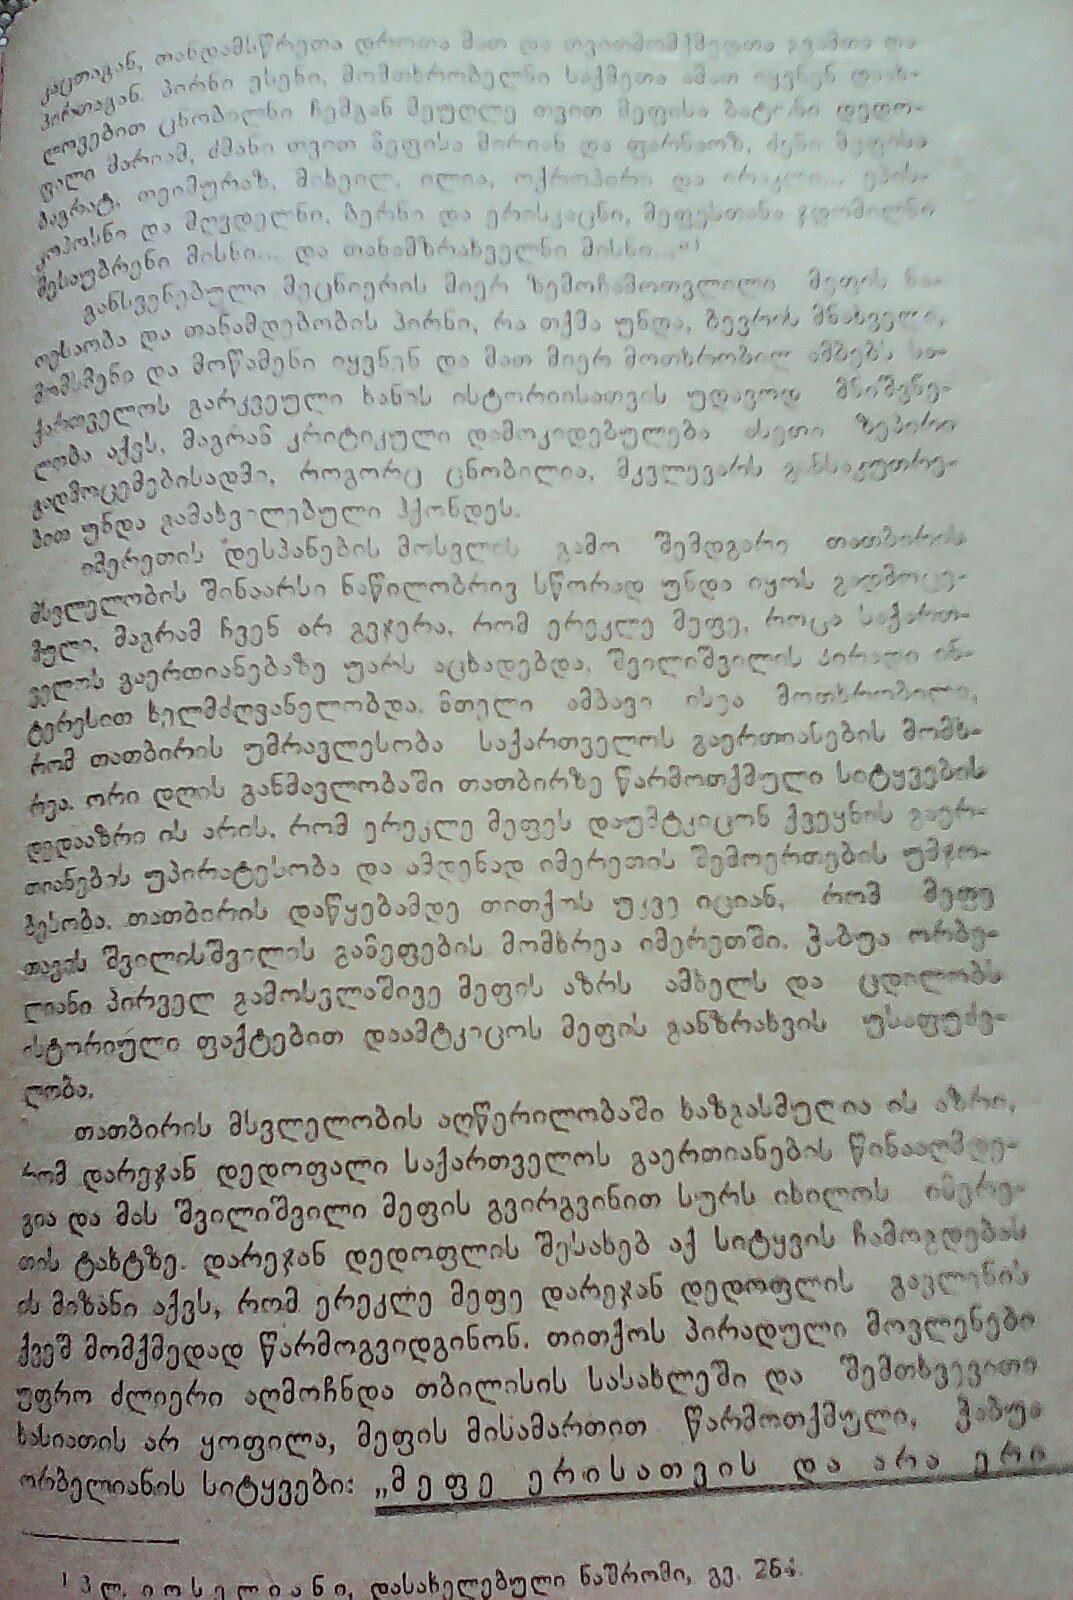 კაცთაგან, თანდამსწრეთა დროთა მათ და თვითმომქმედთა გვამთა და
პირთაგან. პირნი ესენი, მომთხრობელნი საქმეთა ამათ იყვნენ დაახ-
ლოვებით ცნობილნი ჩემგან მეუღლე თვით მეფისა ბატონი დედო-
ფალი მარიამ, ძმანი თვით მეფისა მირიან და ფარნაოზ, ძენი მეფისა
ბაგრატ, თეიმურაზ, მიხეილ, ილია, ოქროპირი და ირაკლი... ეპის-
კოპოსნი და მღვდელნი, ბერნი და ერისკაცნი, მეფესთანა
მესაუბრენი მისნი... და თანამზრახველნი მისნი..."¹
განსვენებული მეცნიერის მიერ ზემოჩამოთვლილი მეფის ნა-
თესაობა და თანამდებობის პირნი, რა თქმა უნდა, ბევრის მნახველი,
მომსმენი და მოწამენი იყვნენ და მათ მიერ მოთხრობილ ამბებს სა-
ქართველოს გარკვეული ხანის ისტორიისათვის უდავოდ მნიშვნე-
ლობა აქვს, მაგრამ კრიტიკული დამოკიდებულება ასეთი ზეპირი
გადმოცემებისადმი, როგორც ცნობილია, მკვლევარს განსაკუთრე-
ბით უნდა გამახვილებული ჰქონდეს.
იმერეთის დესპანების მოსვლის გამო შემდგარი თათბირის
მსვლელობის შინაარსი ნაწილობრივ სწორად უნდა იყოს გადმოცე-
მული, მაგრამ ჩვენ არ გვჯერა, რომ ერეკლე მეფე, როცა საქართ-
ველოს გაერთიანებაზე უარს აცხადებდა, შვილიშვილის პირადი ინ-
ტერესით ხელმძღვანელობდა. მთელი ამბავი ისეა მოთხრობილი,
რომ თათბირის უმრავლესობა საქართველოს გაერთიანების მომხ-
რეა. ორი დღის განმავლობაში თათბირზე წარმოთქმული სიტყვების
დედააზრი ის არის, რომ ერეკლე მეფეს დაუმტკიცონ ქვეყნის გაერ-
თიანების უპირატესობა და ამდენად იმერეთის შემოერთების უმჯო-
ბესობა. თათბირის დაწყებამდე თითქოს უკვე იციან, რომ მეფე
თავის შვილისშვილის გამეფების მომხრეა იმერეთში. ჭაბუა ორბე-
ლიანი პირველ გამოსვლაშივე მეფის აზრს ამხელს და ცდილობს
ისტორიული ფაქტებით დაამტკიცოს მეფის განზრახვის უსაფუძვ-
ლობა.
თათბირის მსვლელობის აღწერილობაში ხაზგასმულია ის აზრი,
რომ დარეჯან დედოფალი საქართველოს გაერთიანების წინააღმდე-
გია და მას შვილიშვილი მეფის გვირგვინით სურს იხილოს იმერე-
თის ტახტზე. დარეჯან დედოფლის შესახებ აქ სიტყვის ჩამოგდებას
ის მიზანი აქვს, რომ ერეკლე მეფე დარეჯან დედოფლის გავლენის
ქვეშ მომქმედად წარმოგვიდგინონ. თითქოს პირადული მოვლენები
უფრო ძლიერი აღმოჩნდა თბილისის სასახლეში და შემთხვევითი
ხასიათის არ ყოფილა, მეფის მისამართით წარმოთქმული, ჭაბუა
ორბელიანის სიტყვები: „მეფე ერისათვის და არა ერი
¹ პლ. იოსელიანი, დასახელებული ნაშრომი, გვ. 264.